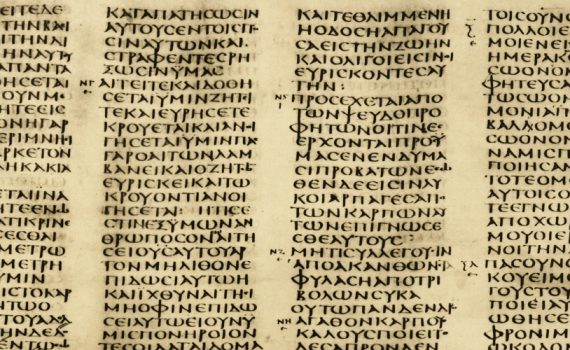 ΕΙΤΕΛΕ
ΤΗΝΚΑΙ
ΙΤΗΝΑΙ
ΗΝΑΥΤΙ
ΑΠΑΝΤΑ
ΘΗϹΕΤΑΙ
ΟΥΝΜ
ΗΤΕΕΙϹ
ΟΝΗΓΑΡ
ΕΡΙΜΝΗ
ΑΡΚΕΤΟΝ
ΑΗΚΑΚΙΑ
ΕΤΑΙΙΝΑ
ΗΤΕΕΝΩ
ΑΤΙΚΡΙΝΕ
ϹΕϹΘΑΙ
ΜΕΤΡΩ
ΜΕΤΡΗ
ΥΜΙΝ
ΙϹΤΟΚΑΡ
ΝΤΩ
ΗΝΔΕ
ΚΑΤΑΠΑΤΗϹΩϹΙΝ
ΑΥΤΟΥϹΕΝΤΟΙϹΠ
ϹΙΝΑΥΤΩΝΚΑΙ
ϹΤΡΑΦΕΝΤΕϹΡΗ
ΞΩϹΙΝΥΜΑϹ
ΑΙΤΕΙΤΕΚΑΙΔΟΘΗ
ϹΕΤΑΙΥΜΙΝΖΗΤΙ
ΤΕΚΑΙΕΥΡΗϹΕΤΕ
ΚΡΟΥΕΤΑΙΚΑΙΑΝΙ
ΓΗϹΕΤΑΙΥΜΙΝΠΑ
ΓΑΡΟΑΙΤΩΝΛΑΜ
ΒΑΝΕΙΚΑΙΟΖΗΤΩ
ΕΥΡΙϹΚΕΙΚΑΙΤΩ
ΚΡΟΥΟΝΤΙΑΝΟΙ
ΓΗϹΕΤΑΙ ΗΤΙϹΕ
ϹΤΙΝΕΞΥΜΩΝΑΝ
ΘΡΩΠΟϹΟΝΑΙΤΗ
ϹΕΙΟΥϹΑΥΤΟΥΑΡ
ΤΟΝΜΗΛΙΘΟΝΕ
ΠΙΔΩϹΙΑΥΤΩ
ΚΑΙΙΧΘΥΝΑΙΤΗ
ΜΗΟΦΙΝΕΠΙΔΩ
ϹΕΙΑΥΤΩΕΙΟΥΝΥ
ΜΙϹΠΟΝΗΡΟΙΟΝ
ΤΕϹΟΙΔΑΤΑΔΟΜΑ
ΚΑΙΤΕΘΛΙΜΜΕΝΗ
ΗΟΔΟϹΗΑΠΑΓΟΥ
ϹΑΕΙϹΤΗΝΖΩΗΝ
ΚΑΙΟΛΙΓΟΙΕΙϹΙΝ
ΕΥΡΙϹΚΟΝΤΕϹΑΥ
ΤΗΝ:
ΠΡΟϹΕΧΕΤΑΙΑΠΟ
ΤΩΝΨΕΥΔΟΠΡΟ
ΦΗΤΩΝΟΙΤΙΝΕ
ΕΡΧΟΝΤΑΙΠΡΟϹΥ
ΜΑϹΕΝΕΝΔΥΜΑ
ϹΙΠΡΟΒΑΤΩΝΕϹΩ
ΘΕΝΔΕΕΙϹΙΝΛΥ
ΚΟΙΑΡΠΑΓΕϹΑΠΟ
ΤΩΝΚΑΡΠΩΝΑΥ
ΤΩΝΕΠΙΓΝΩϹΕ
ϹΘΕΑΥΤΟΥϹ
ΜΗΤΙϹΥΛΛΕΓΟΥϹΙΝ
ΑΠΟΑΚΑΝΘΩΝϹΤΑ
ΦΥΛΑϹΗΑΠΟΤΡΙ
ΒΟΛΩΝϹΥΚΑ
ΟΥΤΩΠΑΝΔΕΝΔΡΟ
ΑΓΑΘΟΝΚΑΡΠΟΥ
ΚΑΛΟΥϹΠΟΙΕΙ
ΤΟΙϹΟΥΝΟ
ΠΟΛΛΟΙΕ
ΜΟΙΕΝΕΙ
ΗΜΕΡΑΚ
ϹΩΟΝΟΜ
ΦΗΤΕΥϹΑ
ΤΩϹΩΟΝ
ΜΟΝΙΑ
ΒΑΛΟΜ
ϹΩΟΝΟΜ
ΝΑΜΙϹΠ
ΠΟΙΗϹΑΜ
ΤΟΤΕΟΜ
ΑΥΤΟΙϹΟ
ΤΕΕΓΝΩ
ΑΠΟΧΩ
ΜΟΥΟΙΕ
ΝΟΙΤΗΝΑ
ΠΑϹΟΥΝΟ
ΚΟΥΕΙΜΟ
ΓΟΥϹΤΟΥ
ΠΟΙΕΙΑΥ